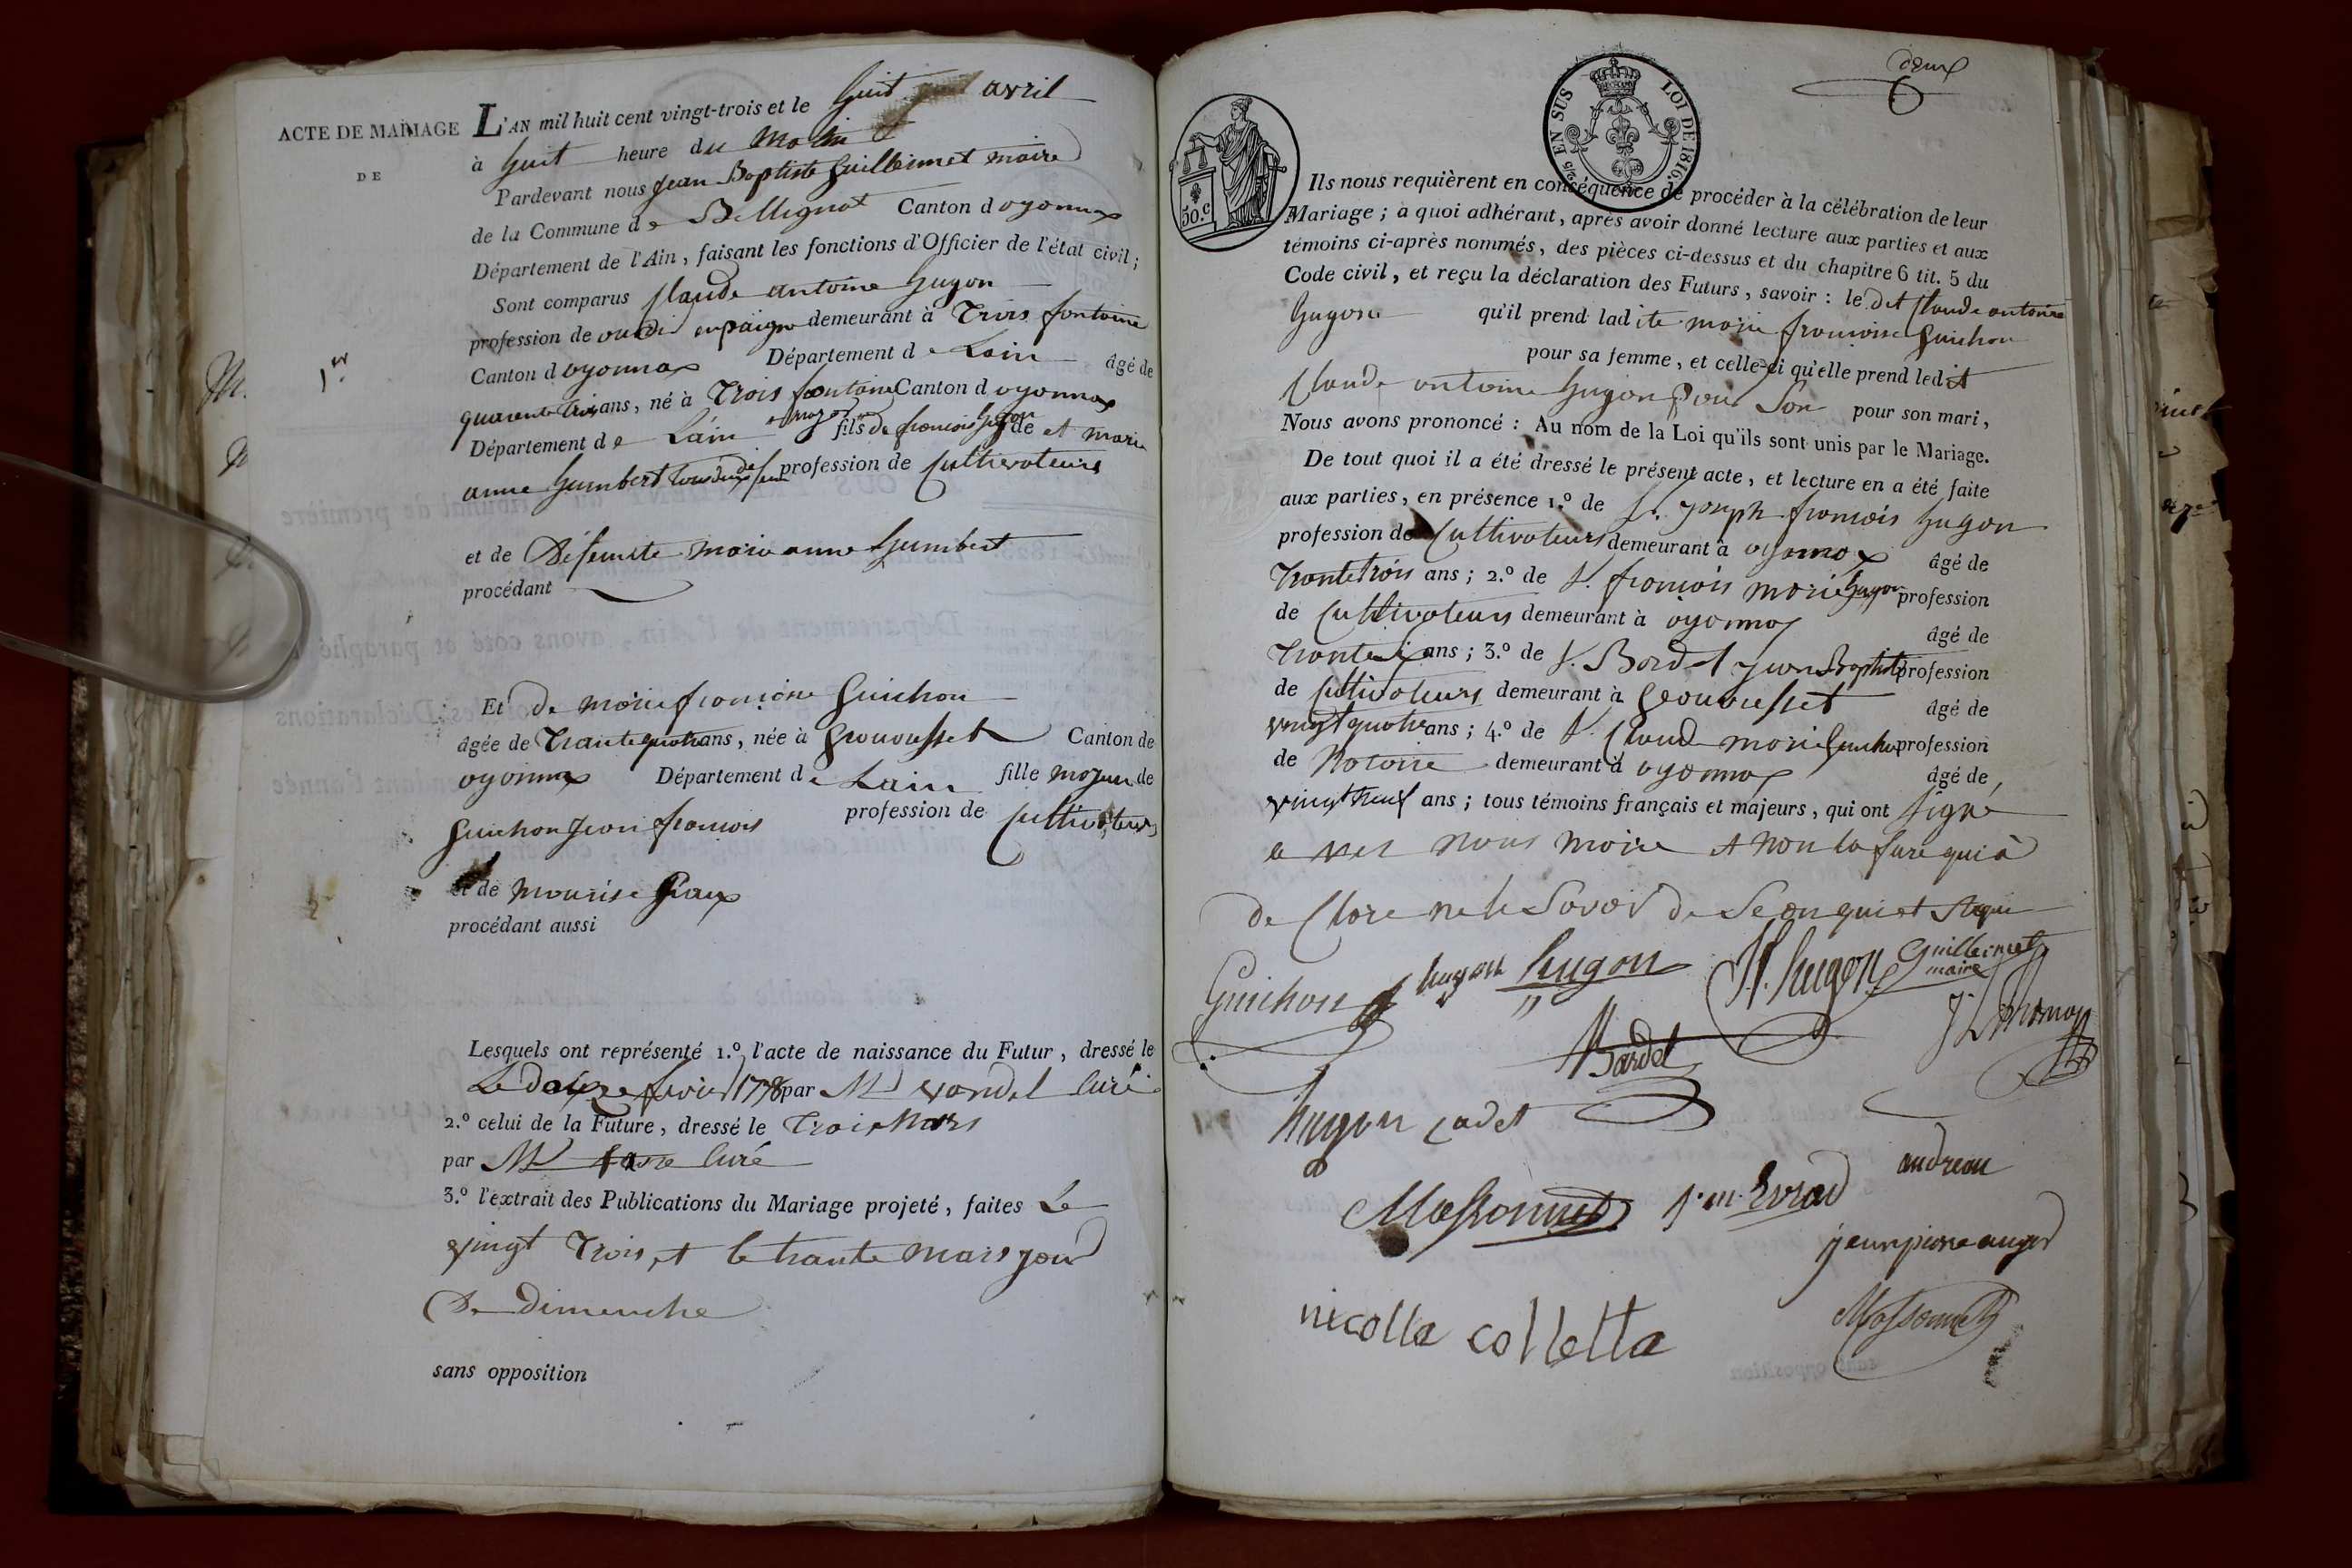 ACTE DE MARIAGE
DE
1er
L'AN mil huit cent vingt-trois et le huit avril
à huit heure du matin
Pardevant nous jean Baptiste Guillermet maire
de la Commune de Bellignat Canton doyonnax
Département de l'Ain, faisant les fonctions d'Officier de l'état civil;
Sont comparus Claude antoine hugon
profession de demeurant à Trois fontaine
Canton doyonnax Département de Lain âgé de
quarente trois ans, né à Trois fontaine Canton doyonnax
Département de Lain fils de francois hugon de et marie
anne humbert tous deux profession de Cultivateurs
et de deffeunte marie anne humbert
procédant
Et de marie francoise Guichon
âgée de Trante quatre ans, née à Grouousset Canton de
oyonnax Département de Lain fille majeur de
Guichon jean francois profession de Cultivateurs
et de
procédant aussi
Lesquels ont représenté 1.º l'acte de naissance du Futur, dressé le
Le fevrier 1778 par Mr Curé
2.º celui de la Future, dressé le Trois Mars
par Mr favre Curé
3.º l'extrait des Publications du Mariage projeté, faites Le
vingt Trois et le trante mars jour
De dimenche
sans opposition
deux
25% EN SUS LOI DE 1816.
50.c
Ils nous requièrent en conséquence de procéder à la célébration de leur
Mariage; à quoi adhérant, après avoir donné lecture aux parties et aux
témoins ci-après nommés, des pièces ci-dessus et du chapitre 6 tit. 5 du
Code civil, et reçu la déclaration des Futurs, savoir: le dit Claude antoine
hugon qu'il prend ladite marie francoise Guichon
pour sa femme, et celle-ci qu'elle prend ledit
Claude antoine hugon Pour Son pour son mari,
Nous avons prononcé: Au nom de la Loi qu'ils sont unis par le Mariage.
De tout quoi il a été dressé le présent acte, et lecture en a été faite
aux parties, en présence 1.º de S. joseph francois hugon
profession de Cultivateurs demeurant à oyonnax âgé de
Trante trois ans; 2.º de S. francois marie hugon profession
de Cultivateurs demeurant à oyonnax âgé de
Trante ans; 3.º de S. Bardet jean Baptiste profession
de Cultivateurs demeurant à Geouousset âgé de
vingt quatre ans; 4.º de S. Claude marie Guichon profession
de Notaire demeurant à oyonnax âgé de
vingt neuf ans; tous témoins français et majeurs, qui ont signé
a vec nous maire et non la fure qui à
de Clare ne le Savoir de Se enquiet
Guichon hugon hugon J.f. hugon Guillermet
maire
Bardet
hugon cadet
andreau
Massonnet Evrad
jean piere auger
nicolla colletta Massonnet